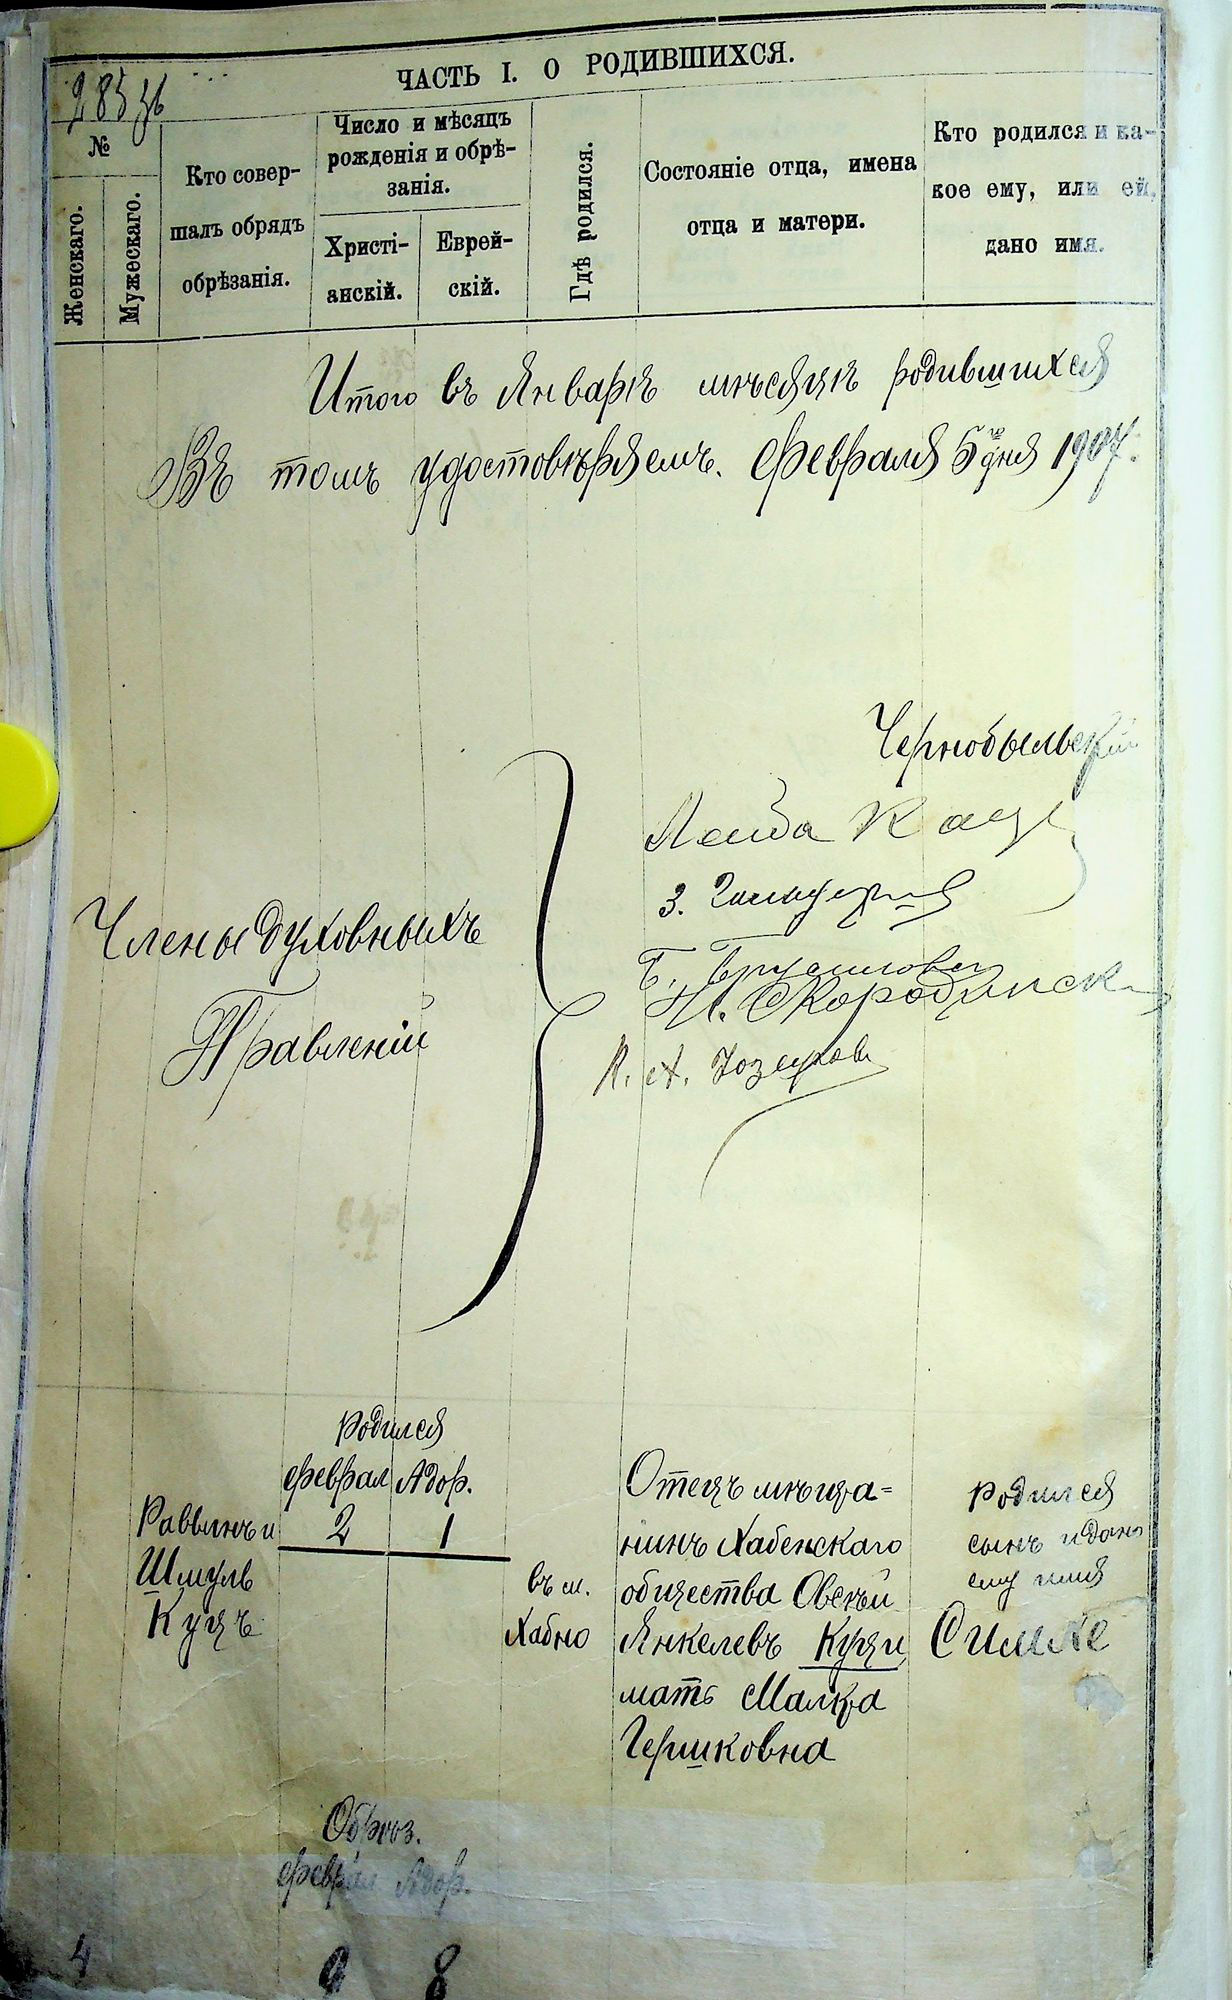 ЧАСТЬ I. О РОДИВШИХСЯ.
285
№
Женскаго.
Мужескаго.
Кто совер-
шалъ обрядъ
обрѣзанія.
Число и мѣсяцъ
рожденія и обрѣ-
занія.
Христі-
анскій.
Еврей-
скій.
Гдѣ родился.
Состояніе отца, имена
отца и матери.
Кто родился и ка-
кое ему, или ей,
дано имя.
Итого въ Январѣ мѣсяцѣ родившихся
Въ томъ удостовѣряемъ. Февраля 5го дня 1907.
Чернобыльскій
Члены духовныхъ
Правленій
Лейба Кац
З.
Б.
Н. Скородинск
К. А.
Родился
Феврал Адор.
2 1
Раввинъ и
Шмуль
Куцъ
въ м.
Хабно
Отецъ мѣща-
нинъ Хабенскаго
общества Овсѣй
Янкелевъ Куци
мать Малка
Гершковна
родился
сынъ и дано
ему имя
Симхе
Обрѣз.
Феврал Адор.
4
9 8